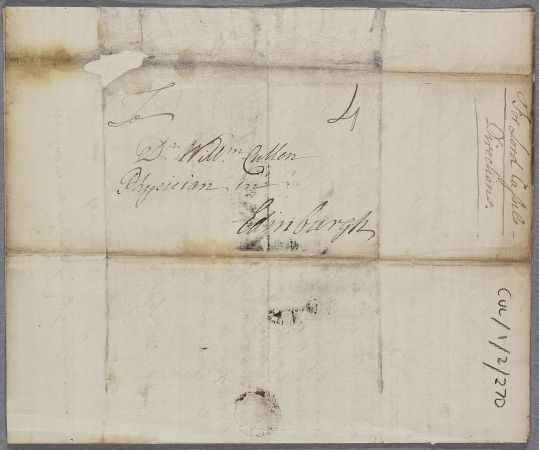 To
4
Dr Willm Cullen
Physician in
Edinburgh
For Lord
Directions.
CUL/1/2/270